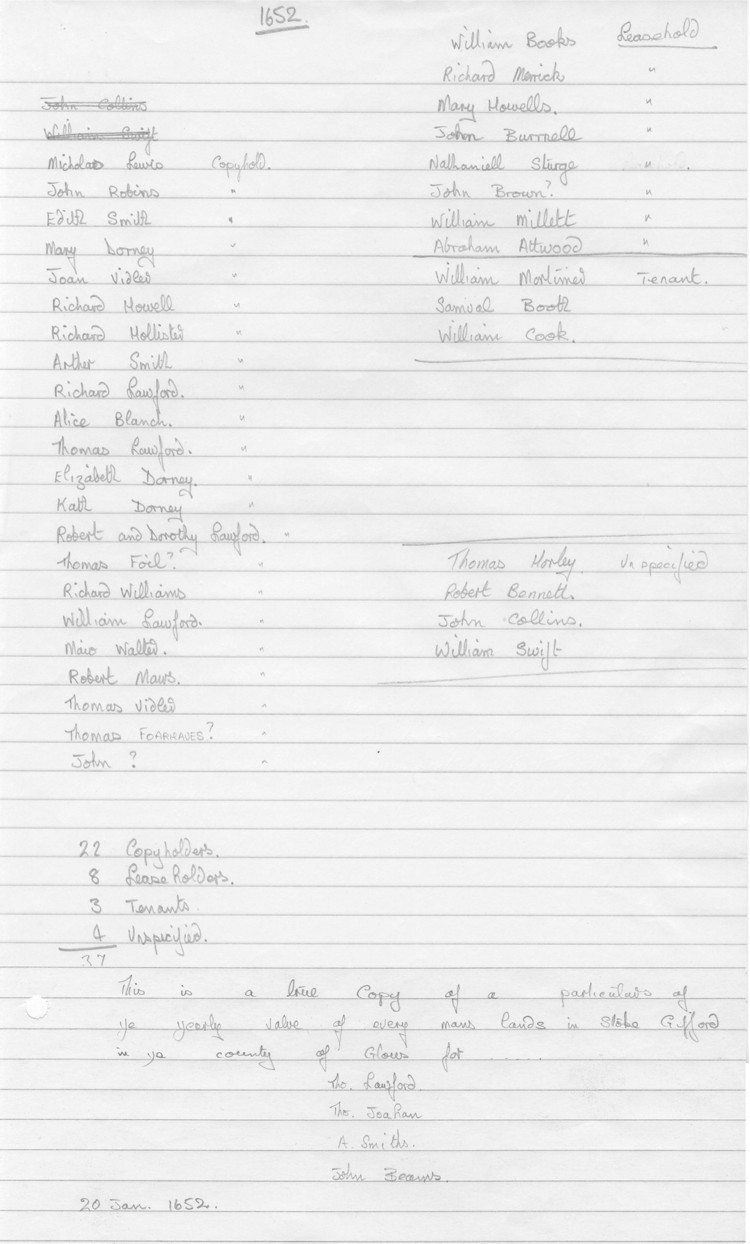 1652.
John Collins
William Swift
Nicholas Lewis Copyhold.
John Robins "
Edith Smith "
Mary Dorney "
Joan Vidler "
Richard Howell "
Richard Hollister "
Arther Smith "
Richard Lawford. "
Alice Blanch. "
Thomas Lawford. "
Elizabeth Dorney. "
Kath Dorney "
Robert and Dorothy Lawford. "
Thomas Foil? "
Richard Williams "
William Lawford. "
Walter. "
Robert Maws. "
Thomas Vidler "
Thomas FOARRADES? "
John ? "
William Books Leasehold
Richard Merrick "
Mary Howells. "
John Burrnell "
Nathaniell Sturge "
John Brown? "
William Millett "
Abraham Attwood "
William Mortimer Tenant.
Samual Booth
William Cook.
Thomas Horley Unspecified
Robert Bennett.
John Collins.
William Swift
22 Copyholders.
8 Lease holders.
3 Tenants.
4 Unspecified.
37
This is a true Copy of a particulars of
ye yearly value of every mans lands in Stoke Gifford
in ye county of Glous for ......
Tho. Lawford
Tho. Joahan
A Smiths.
John Beams.
20 Jan. 1652.